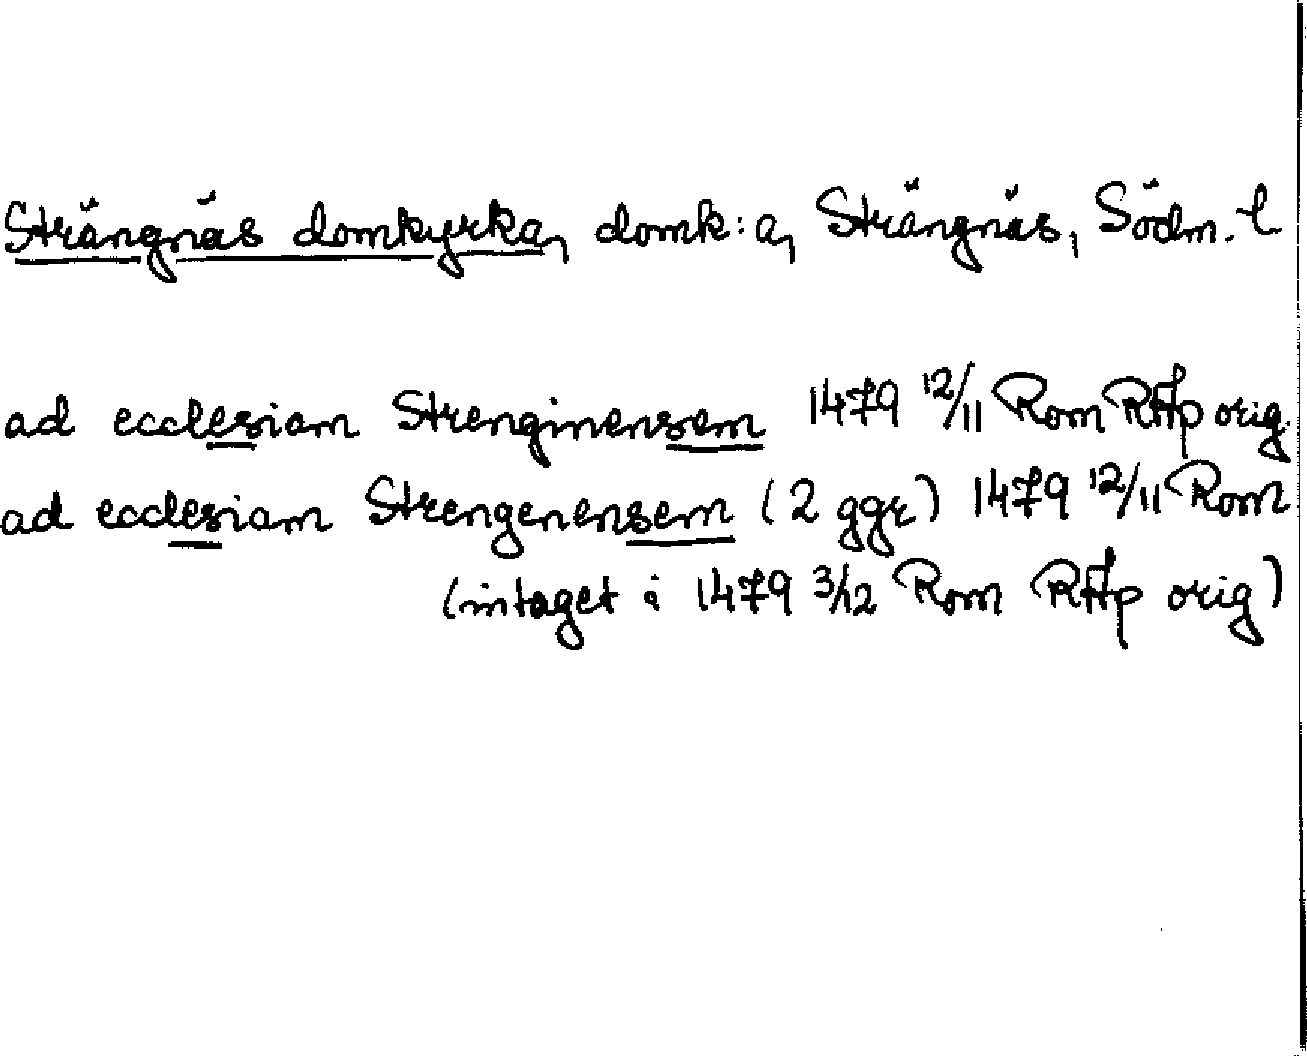 Strängnäs domkyrka, domk:a, Strängnäs, Södm. l
ad ecclesiam Strenginensem 1479 12/11 Rom RAp orig.
ad ecclesiam Strengenensem (2 ggr) 1479 12/11 Rom
(intaget i 1479 3/12 Rom RAp orig)